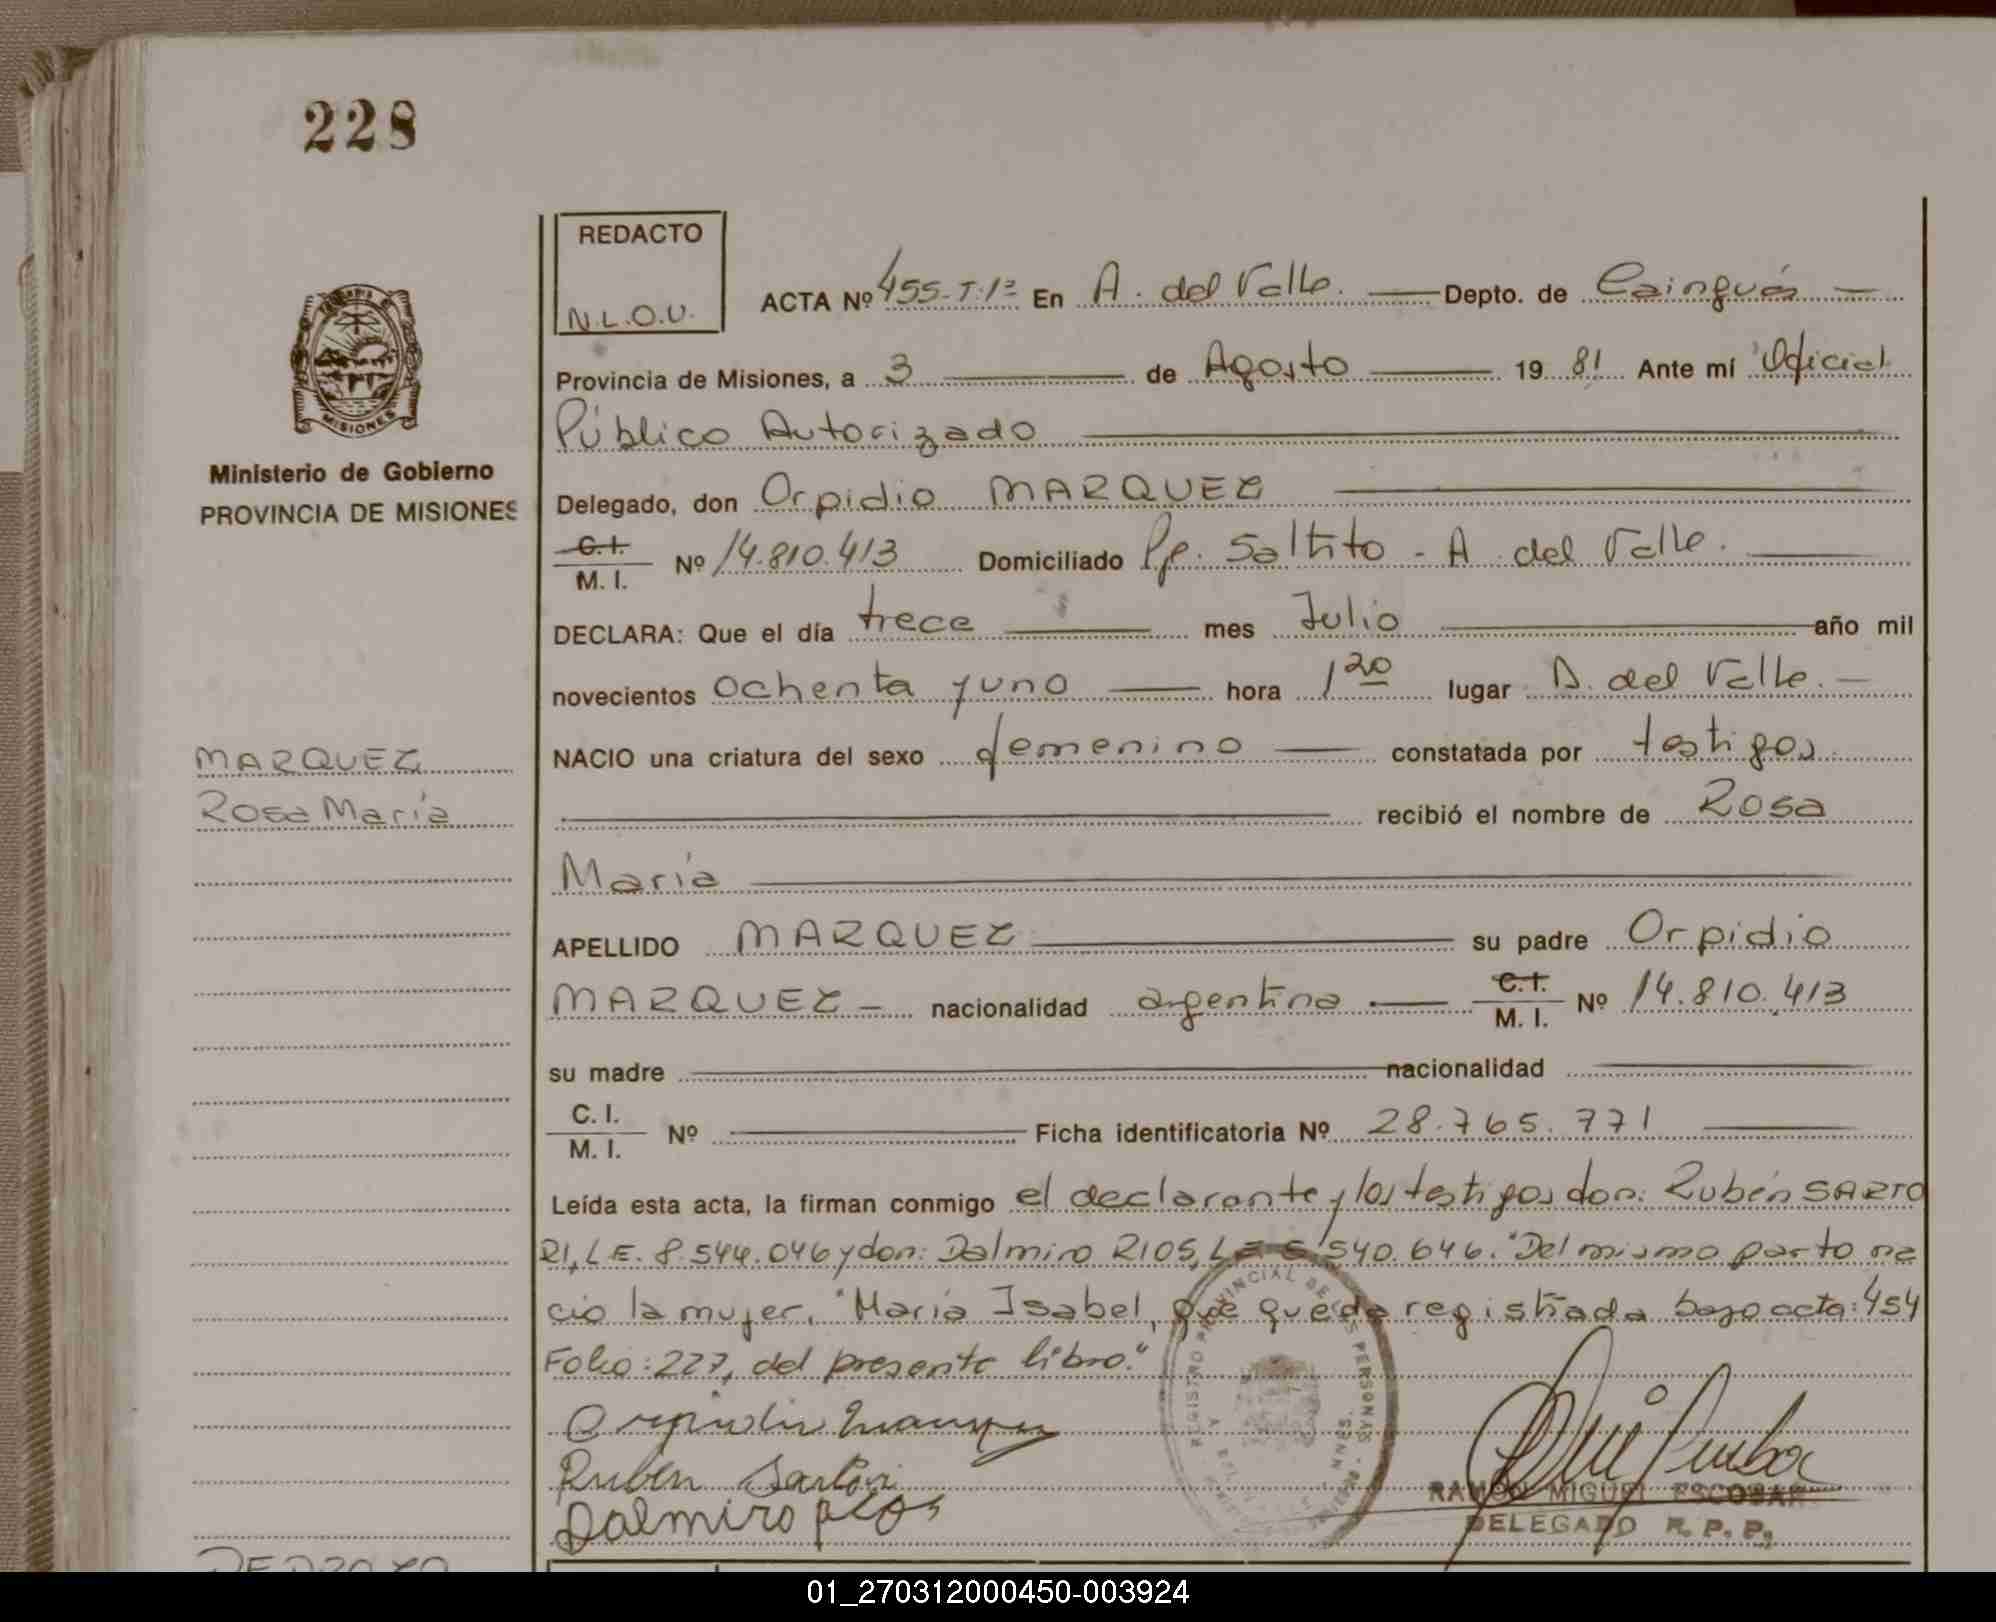 228
REDACTO
N.L.O.U.
ACTA Nº 455-T.1º En A. del Valle. Depto. de Cainguás
MISIONES
Ministerio de Gobierno
PROVINCIA DE MISIONES
Provincia de Misiones, a 3 de Agosto 19 81 Ante mí Oficial
Público Autorizado
Delegado, don Orpidio MARQUEZ
C.I.
M. I. Nº 14.810.413 Domiciliado Pje. Saltito - A del Valle.
DECLARA: Que el día trece mes Julio año mil
novecientos ochenta y uno hora 1 20 lugar A. del Valle.
NACIO una criatura del sexo femenino constatada por testigos
recibió el nombre de Rosa
María
MARQUEZ
Rosa María
APELLIDO MARQUEZ su padre Orpidio
MARQUEZ nacionalidad argentina C.I. M. I. Nº 14.810.413
su madre nacionalidad
C. I.
M. I. Nº Ficha identificatoria Nº 28.765.771
Leída esta acta, la firman conmigo el declarante y los testigos don: Rubén SARTO
RI, L.E. 8.544.046 y don: Dalmiro RIOS, L.E. 540.646. "Del mismo parto na
ció la mujer, "María Isabel, que queda registrada bajo acta: 454
Folio: 227, del presente libro."
Orpidio Marquez
Ruben Sartori
Dalmiro Rios
REGISTRO PROVINCIAL DE LAS PERSONAS
RAMON MIGUEL ESCOBAR
DELEGADO R. P. P.
01_270312000450-003924